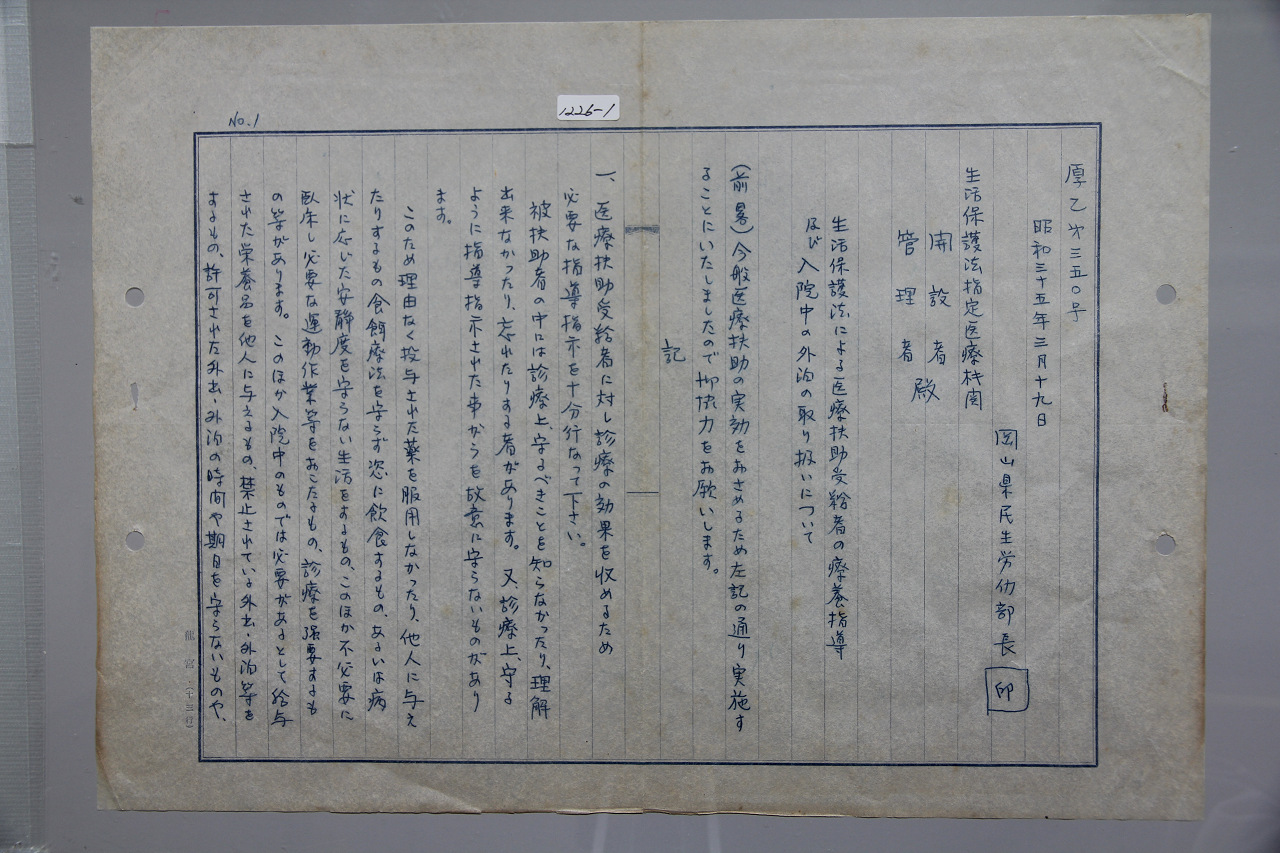 No.1
1226-1
厚乙第三五〇号
昭和三十五年三月十九日
岡山県民生労仂部長 印
生活保護法指定医療機関
開設者
管理者 殿
生活保護法による医療扶助受給者の療養指導
及び入院中の外泊の取り扱いについて
(前畧)今般医療扶助の実効をおさめるため左記の通り実施す
ることにいたしましたので御協力をお願いします。
記
一、医療扶助受給者に対し診療の効果を収めるため
必要な指導指示を十分行なって下さい。
被扶助者の中には診療上、守るべきことを知らなかったり、理解
出来なかったり、忘れたりする者があります。又診療上、守る
ように指導指示された事がらを故意に守らないものがあり
ます。
このため理由なく投与された薬を服用しなかったり、他人に与え
たりするもの食餌療法を守らず恣に飲食するもの、あるいは病
状に応じた安静度を守らない生活をするもの、このほか不必要に
臥床し必要な運動作業等をおこたるもの、診療を強要するも
の等があります。このほか入院中のものでは必要があるとして給与
された栄養品を他人に与えるもの、禁止されている外出・外泊等を
するもの、許可された外出・外泊の時間や期日を守らないものや、
龍宮・(十三行)